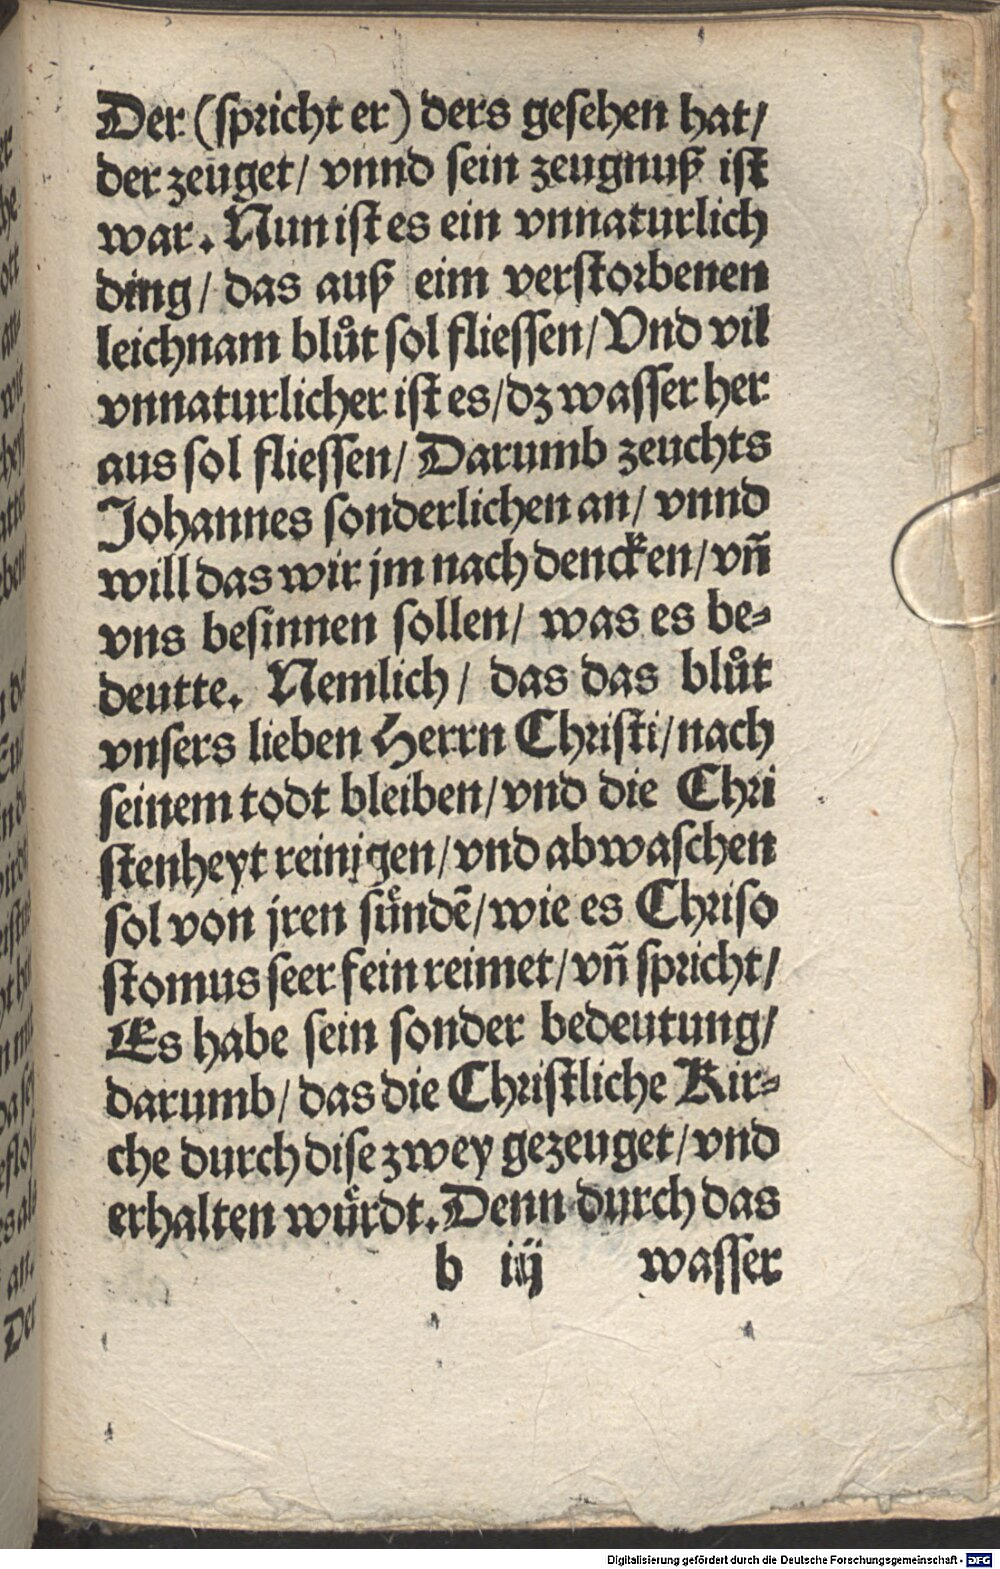 Der (spricht er) ders gesehen hat/
der zeuget/ vnnd sein zeugnuß ist
war. Nun ist es ein vnnaturlich
ding/ das auß eim verstorbenen
leichnam blůt sol fliessen/ Vnd vil
vnnaturlicher ist es/ dz wasser her
aus sol fliessen/ Darumb zeuchts
Johannes sonderlichen an/ vnnd
will das wir jm nach dencken/ vñ
vns besinnen sollen/ was es be-
deutte. Nemlich/ das das blůt
vnsers lieben Herrn Christi/ nach
seinem todt bleiben/ vnd die Chri
stenheyt reinigen/ vnd abwaschen
sol von jren sündẽ/ wie es Chriso
stomus seer fein reimet/ vñ spricht/
Es habe sein sonder bedeutung/
darumb/ das die Christliche Kir-
che durch dise zwey gezeuget/ vnd
erhalten würdt. Denn durch das
b iij wasser
Digitalisierung gefördert durch die Deutsche Forschungsgemeinschaft - DFG